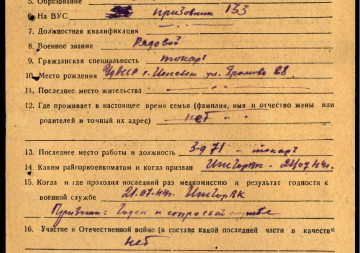 5. Образование
6. На ВУС призовник 133
7. Должностная квалификация
8. Военное звание Рядовой
9. Гражданская специальность токарь
10. Место рождения УАССР г. Ижевск ул.
11. Последнее место жительства
12. Где проживает в настоящее время семья (фамилия, имя и отчество жены или
родителей и точный их адрес) нет
13. Последнее место работы и должность 3-д 71 - токарь
14. Каким райгорвоенкоматом и когда призван ИжГорВК - 21.07.44 г.
15. Когда и где проходил последний раз медкомиссию и результат годности к
военной службе 21.07.44 г. ИжГорВК
Годен к строевой службе
16. Участие в Отечественной войне (в составе какой последней части в качестве
нет